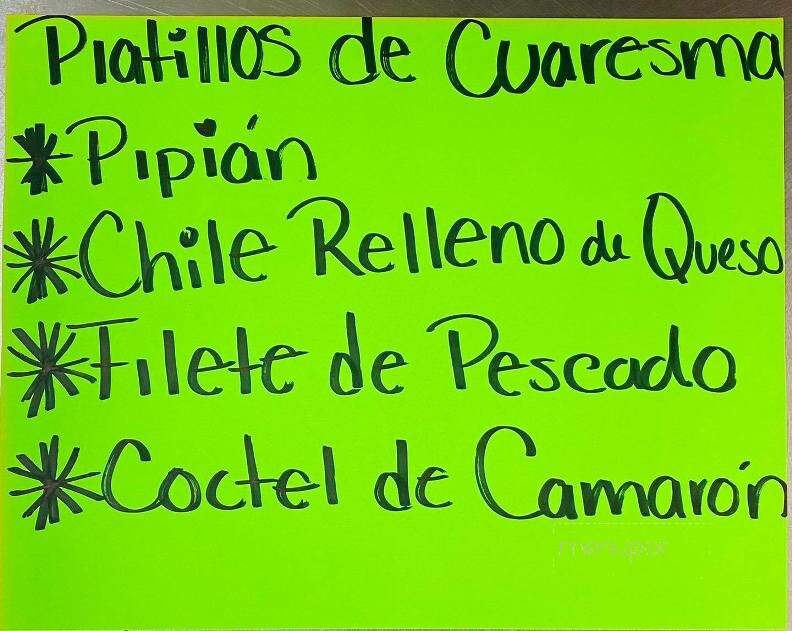 Platillos de Cuaresma
*Pipián
*Chile Relleno de Queso
*Filete de Pescado
*Coctel de Camarón
menupix